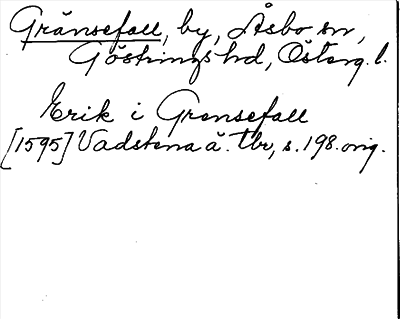 Gränsefall, by, Åsbo sn,
Göstrings hd, Österg. l.
Erik i Gransefall
[1595] Vadstena ä. tbr, s. 198. orig.